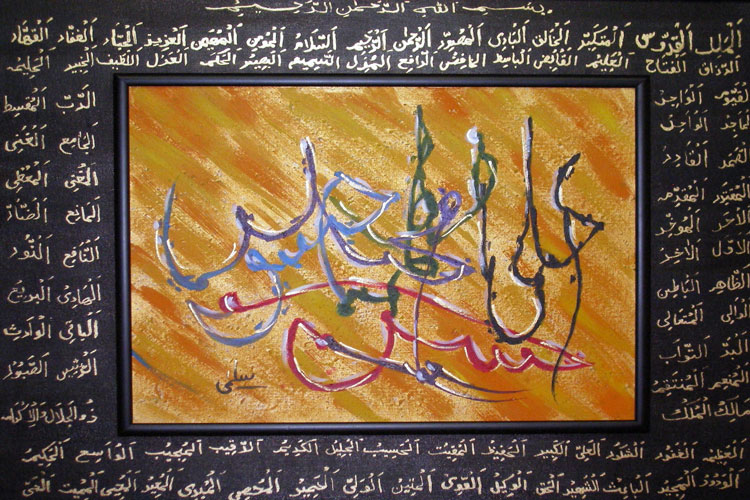 بسم الله الرحمن الرحيم
الملك القدوس المتكبر الخالق البارئ المصور الرحمن الرحيم السلام المؤمن المهيمن العزيز الجبار الغفار القهار
الرزاق الفتاح العليم القابض الباسط الخافض الرافع المذل السميع البصير الحكم العدل اللطيف الخبير الحليم
القيوم الواجد
الماجد الواحد
الصمد القادر
المقتدر المقدم
الآخر المؤخر
الأول الآخر
الظاهر الباطن
الوالي المتعالي
البر التواب
المنعم المنتقم
مالك الملك
علي
حسين
الرب المقسط
الجامع الغني
المغني المعطي
المانع الضار
النافع النور
الهادي البديع
الباقي الوارث
الرشيد الصبور
ذو الجلال والإكرام
العظيم الغفور الشكور العلي الكبير الحفيظ المقيت الحسيب الجليل الكريم الرقيب المجيب الواسع الحكيم
الودود المجيد الباعث الشهيد الحق الوكيل القوي المتين الولي الحميد المحصي المبدئ المعيد المحيي المميت الحي